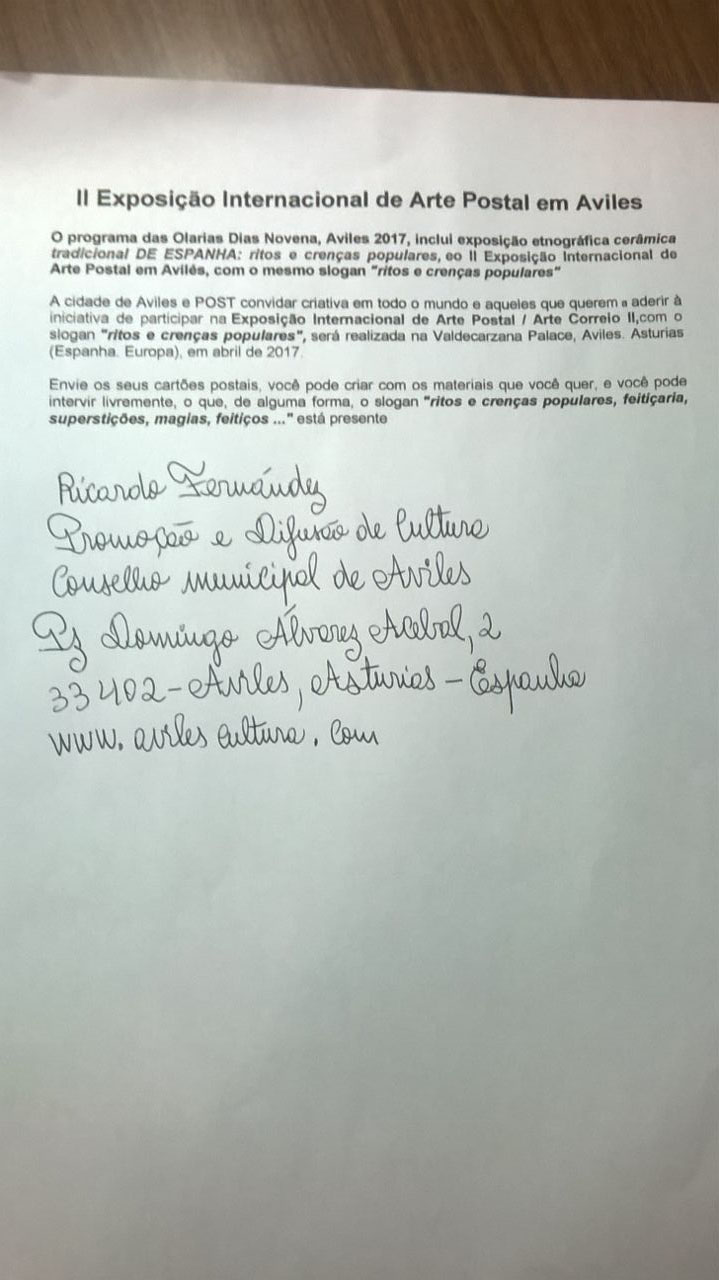 II Exposição Internacional de Arte Postal em Aviles
O programa das Olarias Dias Novena, Aviles 2017, inclui exposição etnográfica cerâmica
tradicional DE ESPANHA: ritos e crenças populares, eo II Exposição Internacional de
Arte Postal em Avilés, com o mesmo slogan "ritos e crenças populares"
A cidade de Aviles e POST convidar criativa em todo o mundo e aqueles que querem a aderir à
iniciativa de participar na Exposição Internacional de Arte Postal / Arte Correio II,com o
slogan "ritos e crenças populares", será realizada na Valdecarzana Palace, Aviles. Asturias
(Espanha. Europa), em abril de 2017.
Envie os seus cartões postais, você pode criar com os materiais que você quer, e você pode
intervir livremente, o que, de alguma forma, o slogan "ritos e crenças populares, feitiçaria,
superstições, magias, feitiços ..." está presente
Ricardo Fernández
Promoção e Difusão de Cultura
Conselho municipal de Aviles
Pz Domingo Álvarez Acebal, 2
33402-Aviles, Asturias - Espanha
www.avilescultura.com